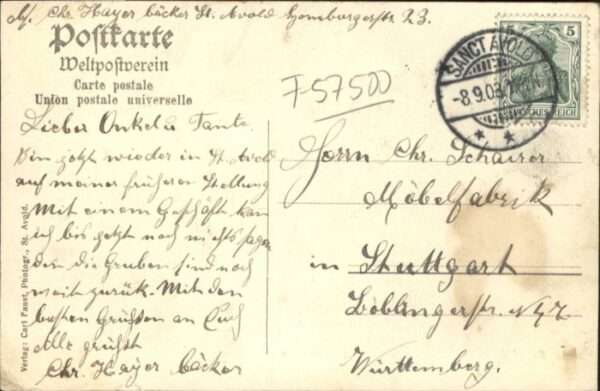 Chr. Hayer bäcker St. Avold Homburgerstr 23.
Postkarte
Weltpostverein
Carte postale
Union postale universelle
5
DEUTSCHES REICH
SANCT AVOLD
-8.9.03
F 57500
Lieber Onkel u Tante.
Bin jetzt wieder in St. Avold
auf meiner früheren Stellung
Mit einem Geschäft kan
ich bis jetzt noch nichts sagen
den die Gruben sind noch
weit zurück. Mit den
besten Grüßen an Euch
Alle grüßt
Chr. Hayer bäcker
Herrn Chr. Schairer
Möbelfabrik
in Stuttgart
Böblingerstr. N
Württemberg.
Verlag: Carl Faust, Photogr., St. Avold.